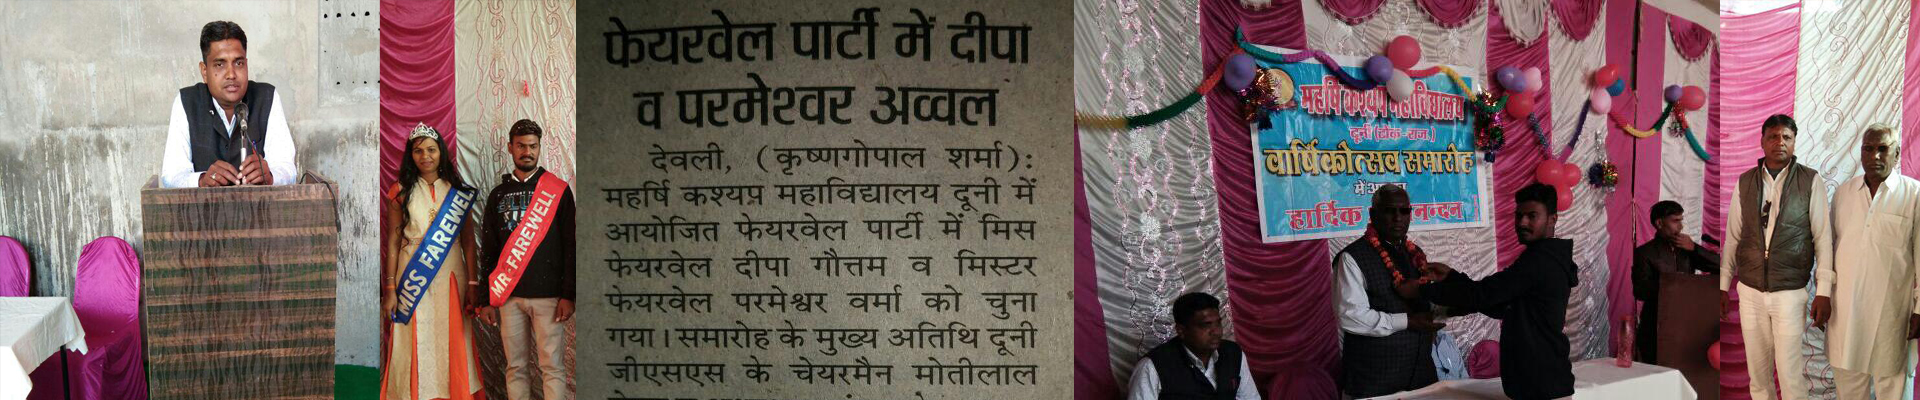 MISS FAREWELL
MR. FAREWELL
फेयरवेल पार्टी में दीपा
व परमेश्वर अव्वल
देवली, (कृष्णगोपाल शर्मा):
महर्षि कश्यप महाविद्यालय दूनी में
आयोजित फेयरवेल पार्टी में मिस
फेयरवेल दीपा गौत्तम व मिस्टर
फेयरवेल परमेश्वर वर्मा को चुना
गया। समारोह के मुख्य अतिथि दूनी
जीएसएस के चेयरमैन मोतीलाल
महर्षि कश्यप महाविद्यालय
दूनी (टोंक-राज.)
वार्षिकोत्सव समारोह
में
हार्दिक